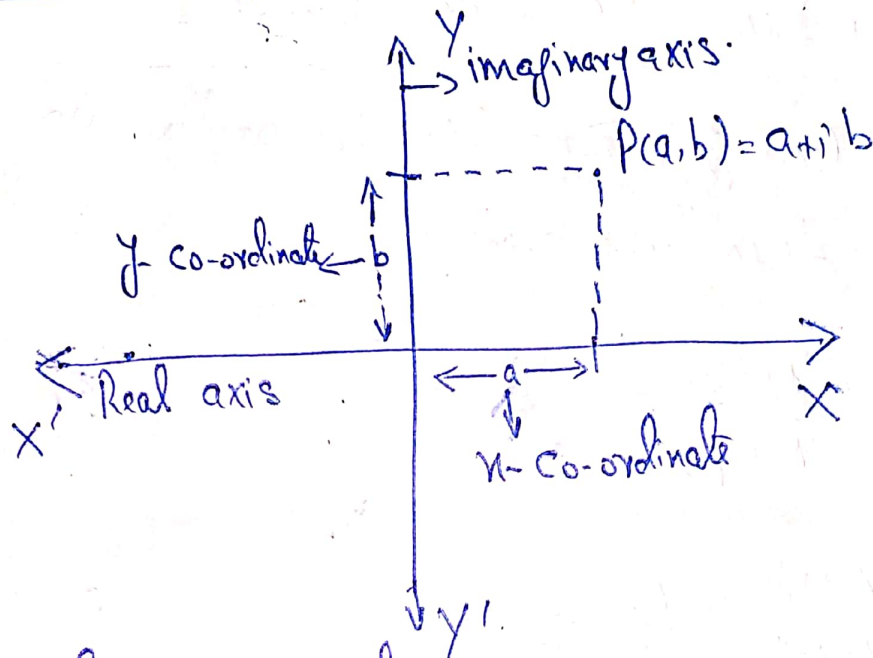 Y
imaginary axis.
P(a,b) = a+ib
y- co-ordinate
b
Real axis
a
X'
X
x- co-ordinate
Y'